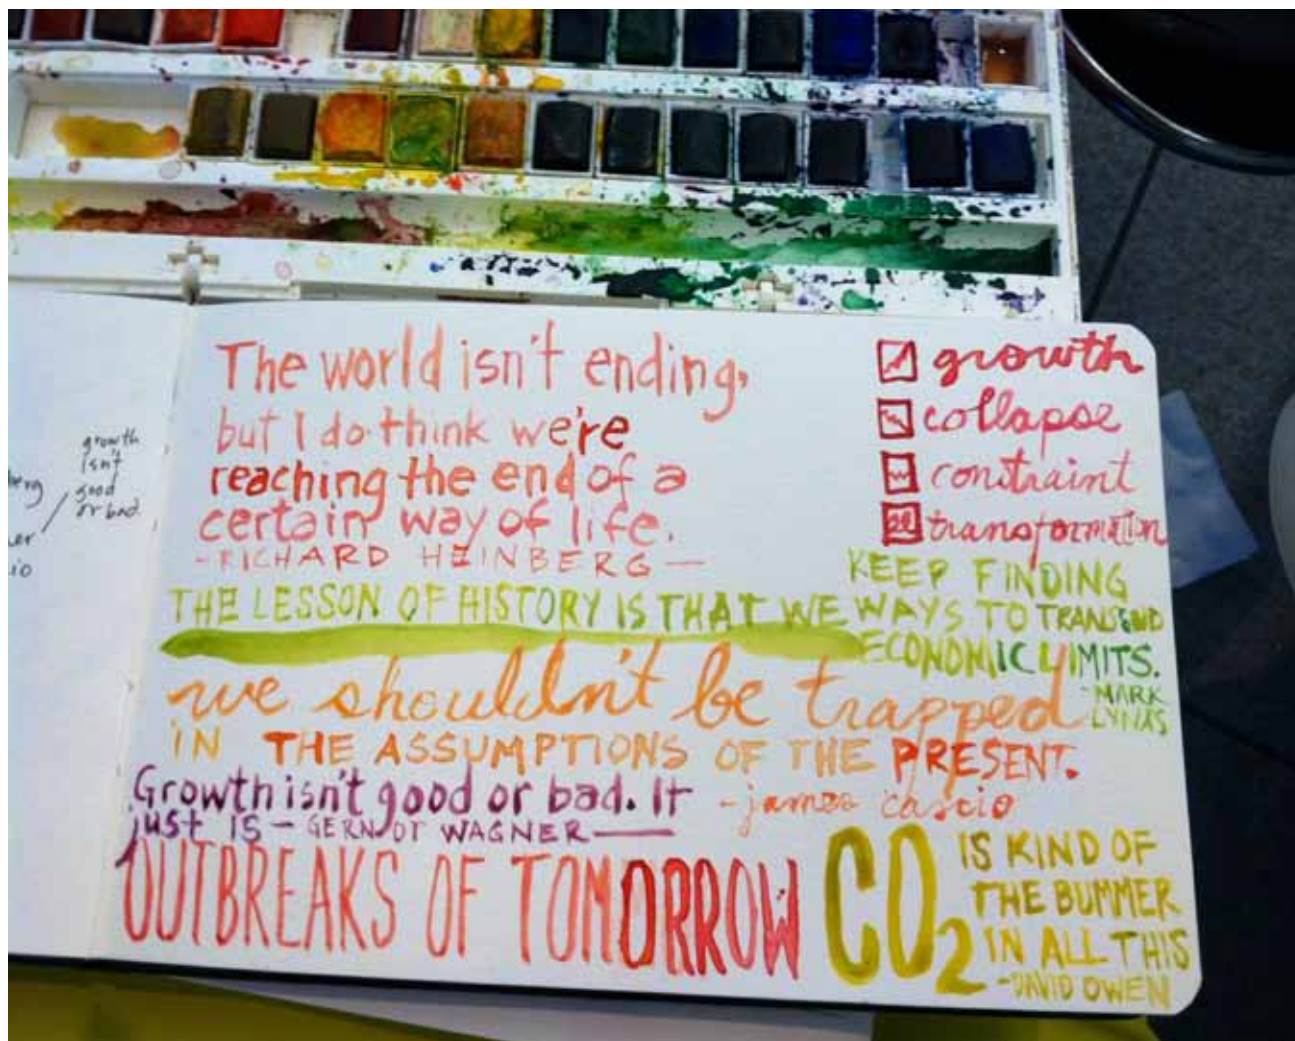 growth
isn't
good
or bad
The world isn't ending,
but I do think we're
reaching the end of a
certain way of life.
-RICHARD HEINBERG-
growth
collapse
constraint
transformation
THE LESSON OF HISTORY IS THAT WE
KEEP FINDING
WAYS TO TRANSCEND
ECONOMIC LIMITS.
-MARK
LYNAS
we shouldn't be trapped
IN THE ASSUMPTIONS OF THE PRESENT.
-james cascio
Growth isn't good or bad. It
just IS - GERNOT WAGNER-
OUTBREAKS OF TOMORROW
CO2
IS KIND OF
THE BUMMER
IN ALL THIS
-DAVID OWEN